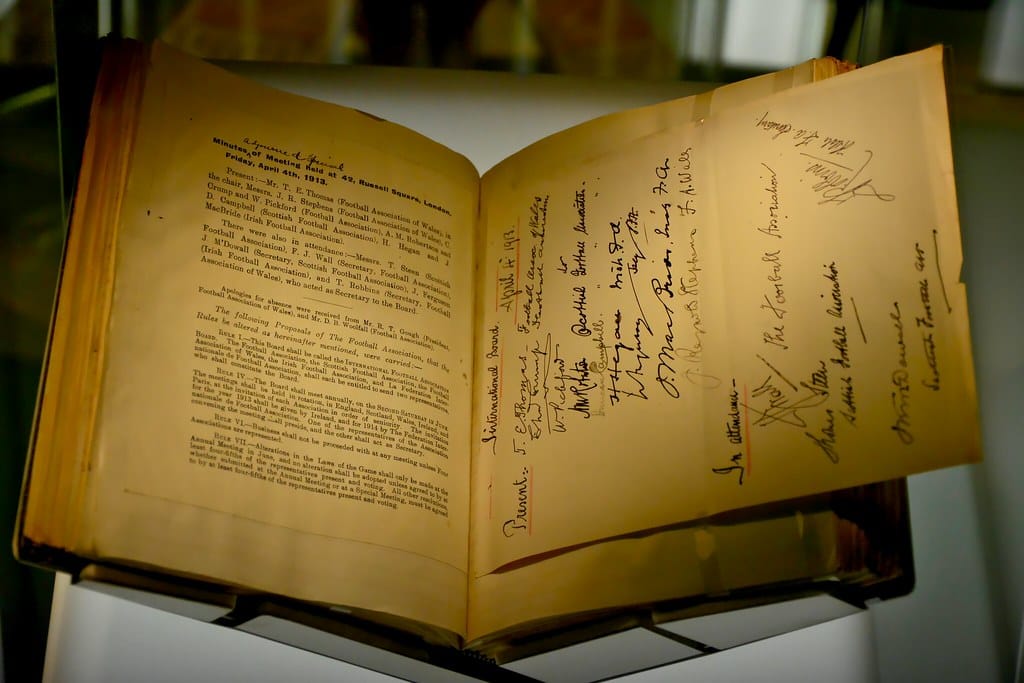 adjourned & Special
Minutes of Meeting held at 42, Russell Square, London,
Friday, April 4th, 1913.
Present :—Mr. T. E. Thomas (Football Association of Wales), in
the chair, Messrs. J. R. Stephens (Football Association of Wales), C.
Crump and W. Pickford (Football Association), A. M. Robertson and
D. Campbell (Scottish Football Association), H. Hegan and J.
MacBride (Irish Football Association).
There were also in attendance :—Messrs. T. Steen (Scottish
Football Association), F. J. Wall (Secretary, Football Association),
J. M'Dowall (Secretary, Scottish Football Association), J. Ferguson
(Irish Football Association), and T. Robbins (Secretary, Football
Association of Wales), who acted as Secretary to the Board.
Apologies for absence were received from Mr. R. T. Gough (President,
Football Association of Wales), and Mr. D. B. Woolfall (Football Association).
The following Proposals of The Football Association, that the
Rules be altered as hereinafter mentioned, were carried :—
RULE I.—This Board shall be called the INTERNATIONAL FOOTBALL ASSOCIATION
BOARD. The Football Association, the Scottish Football Association, the Football
Association of Wales, the Irish Football Association, and La Federation Inter-
nationale de Football Association, shall each be entitled to send two representatives,
who shall constitute the Board.
RULE IV.—The Board shall meet annually, on the SECOND SATURDAY IN JUNE
The meetings shall be held in rotation, in England, Scotland, Wales, Ireland, and
Paris, at the invitation of each Association in order of seniority. The invitation
for the year 1913 shall be given by Ireland, and for 1914 by The Federation Inter-
nationale de Football Association. One of the representatives of the Association
convening the meeting shall preside, and the other shall act as Secretary.
RULE VI.—Business shall not be proceeded with at any meeting unless Four
Associations are represented.
RULE VII.—Alterations in the Laws of the Game shall only be made at the
Annual Meeting in June, and no alteration shall be adopted unless agreed to by at
least four-fifths of the representatives present and voting. All other resolutions,
whether submitted at the Annual Meeting or at a Special Meeting, must be agreed
to by at least four-fifths of the representatives present and voting.
International Board. April 4 1913.
Present:- T. E. Thomas. Football Assoc of Wales
Chas Crump Football Association
W Pickford do
A M Robertson Scottish Football Association
Campbell. " " "
H Hegan Irish F.A.
J. MacBride
Stephens F. A. Wales
In attendance
The Football Association
Scottish Football Association